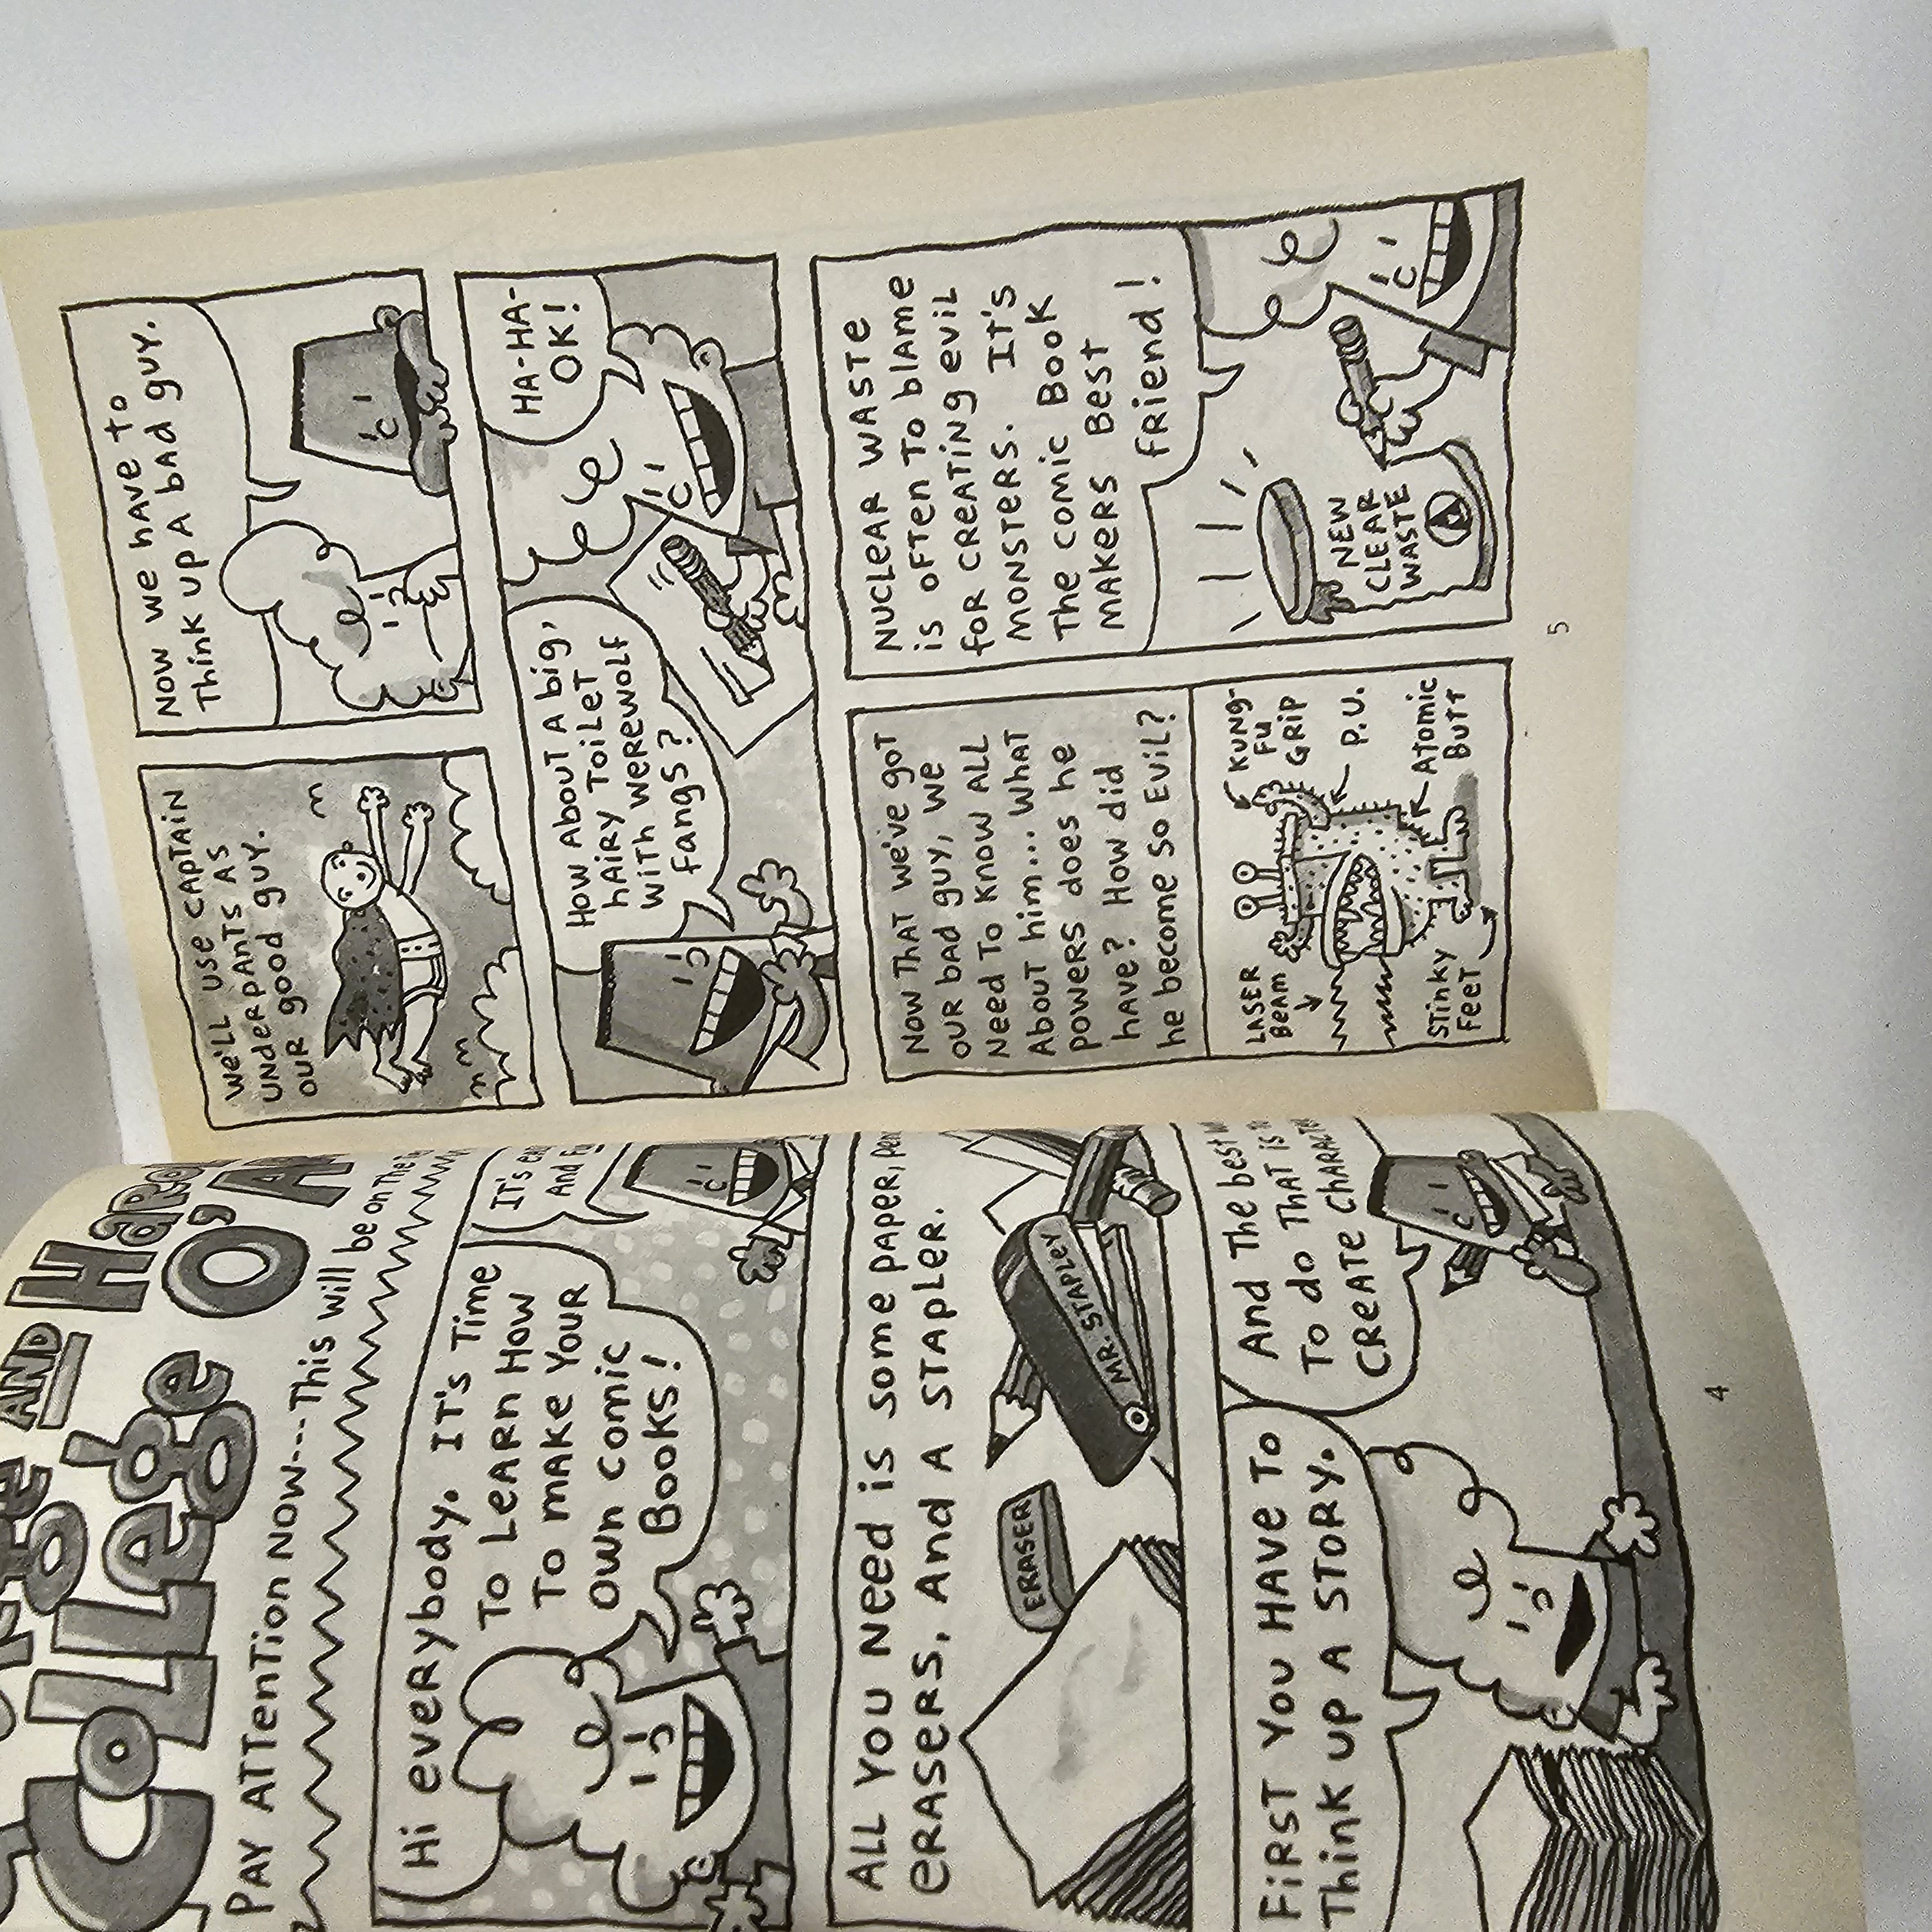 AND
College O'
PAY ATTenTion NOW---This will be on The
Hi eveRybody. IT's Time
To LeARn How
To mAKe YouR
own comic
BooKs!
IT's
And
ALL You Need is some pApeR,
eRAseRs, And A STApLeR.
ERASER
MR. STAPLEY
FiRsT You HAVe To
Think up A SToRY.
And The best
To do ThAT is
CReATe
4
We'LL use CApTAin
UndeRpAnTs As
ouR good guy.
Now we hAve To
Think up A bAd guy.
How AbouT A big,
hAiRy ToiLeT
wiTh weRewoLf
fangs?
HA-HA-
OK!
Now ThAT we've goT
ouR bAd guy, we
Need To Know ALL
AbouT him... WhAT
poweRs does he
hAve? How did
he become so EviL?
LASER
BeAm
KUNG-
FU
GRiP
P.U.
STinKy
FeeT
ATomic
BuTT
NUCLeAR WASTe
is ofTen To bLAme
foR CReATiNg eviL
MONSTeRs. IT's
The comic BooK
MAKeRs BesT
fRiend!
NEW
CLEAR
WASTE
5